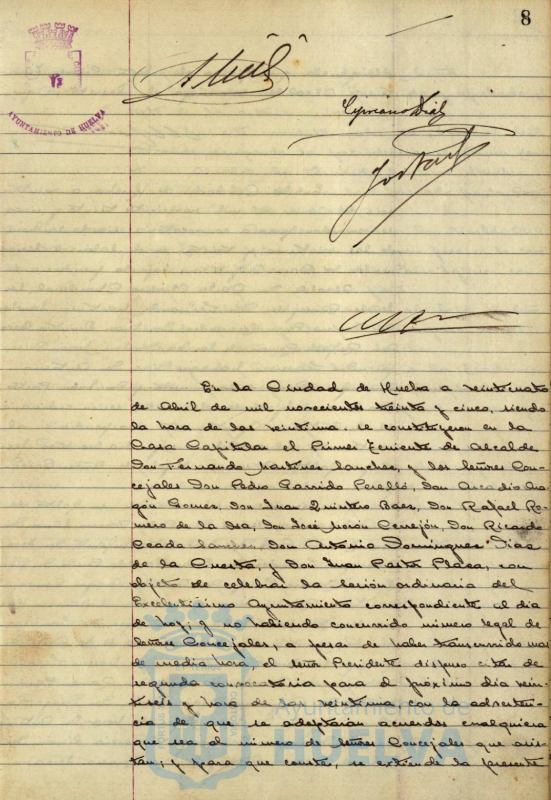 8
AYUNTAMIENTO DE HUELVA
Cipriano Dial
En la Ciudad de Huelva a veinticuatro
de Abril de mil novecientos treinta y cinco, siendo
la hora de las veintiuna se constituyeron en la
Casa Capitular el Primer Teniente de Alcalde
Don Fernando Martinez Sanchez, y los Señores Con-
cejales Don Pedro Garrido Perelló, Don Arcadio Ara-
gón Gomez, Don Juan Quintero Baez, Don Rafael Ro-
mero de la Osa, Don José Morón Cerrejón, Don Ricardo
Ceada Sanchez, Don Antonio Dominguez Dias
de la Cuesta, y Don Juan Plaza, con
objeto de celebrar la sesión ordinaria del
Excelentisimo Ayuntamiento correspondiente al dia
de hoy; y no habiendo concurrido número legal de
Señores Concejales, a pesar de haber transcurrido mas
de media hora, el señor Presidente dispuso citar de
segunda convocatoria para el próximo dia vein-
tiseis y hora de las veintiuna con la adverten-
cia de que se adoptarán acuerdos cualquiera
que sea el número de Señores Concejales que asis-
tan; y para que conste, se extiende la presente
Ayuntamiento de
HUELVA